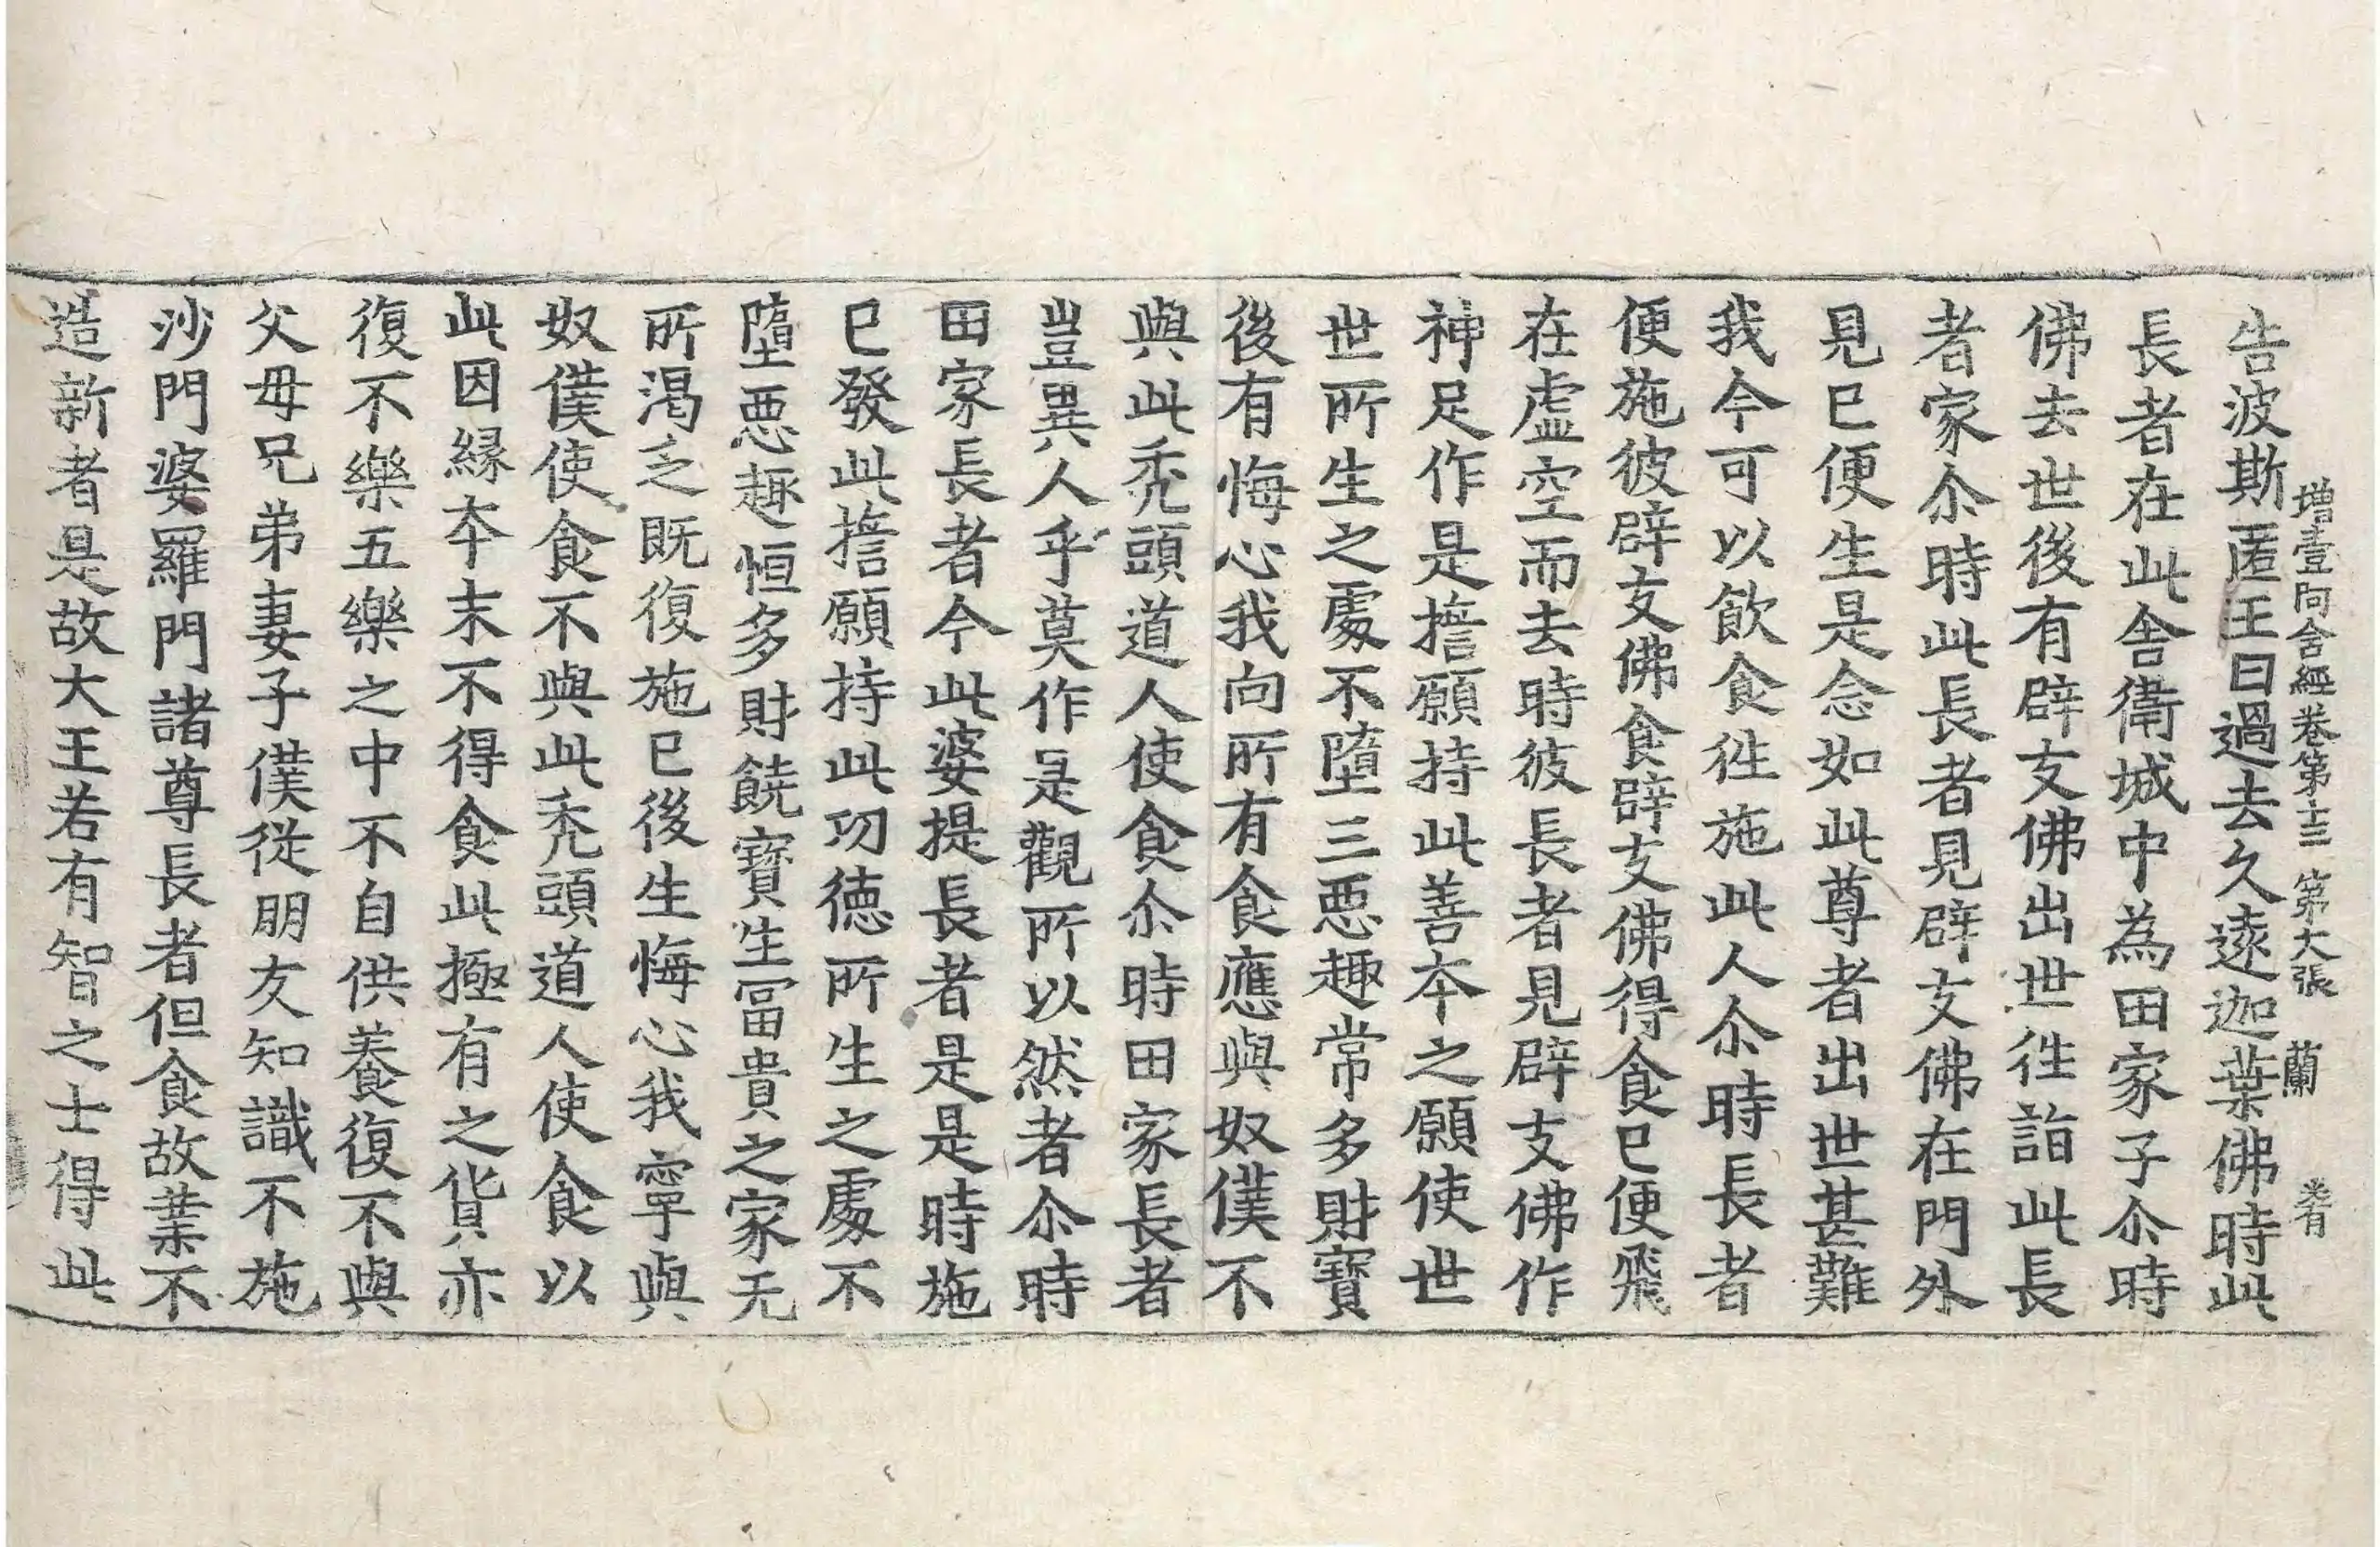 增壹阿含經卷第十三 第六張 蘭
告波斯匿王曰過去久遠迦葉佛時此
長者在此舍衛城中為田家子尒時
佛去世後有辟支佛出世徃詣此長
者家尒時此長者見辟支佛在門外
見已便生是念如此尊者出世甚難
我今可以飮食徃施此人尒時長者
便施彼辟支佛食辟支佛得食已便飛
在虛空而去時彼長者見辟支佛作
神足作是擔願持此善本之願使世
世所生之處不墮三惡趣常多財寶
後有悔心我向所有食應與奴僕不
與此禿頭道人使食尒時田家長者
豈異人乎莫作是觀所以然者尒時
田家長者今此婆提長者是是時施
已發此擔願持此功德所生之處不
墮惡趣恒多財饒寶生冨貴之家无
所渇乏既復施已後生悔心我寧與
奴僕使食不與此禿頭道人使食以
此因緣本末不得食此極有之貨亦
復不樂五樂之中不自供養復不與
父母兄弟妻子僕從朋友知識不施
沙門婆羅門諸尊長者但食故業不
造新者是故大王若有智之士得此